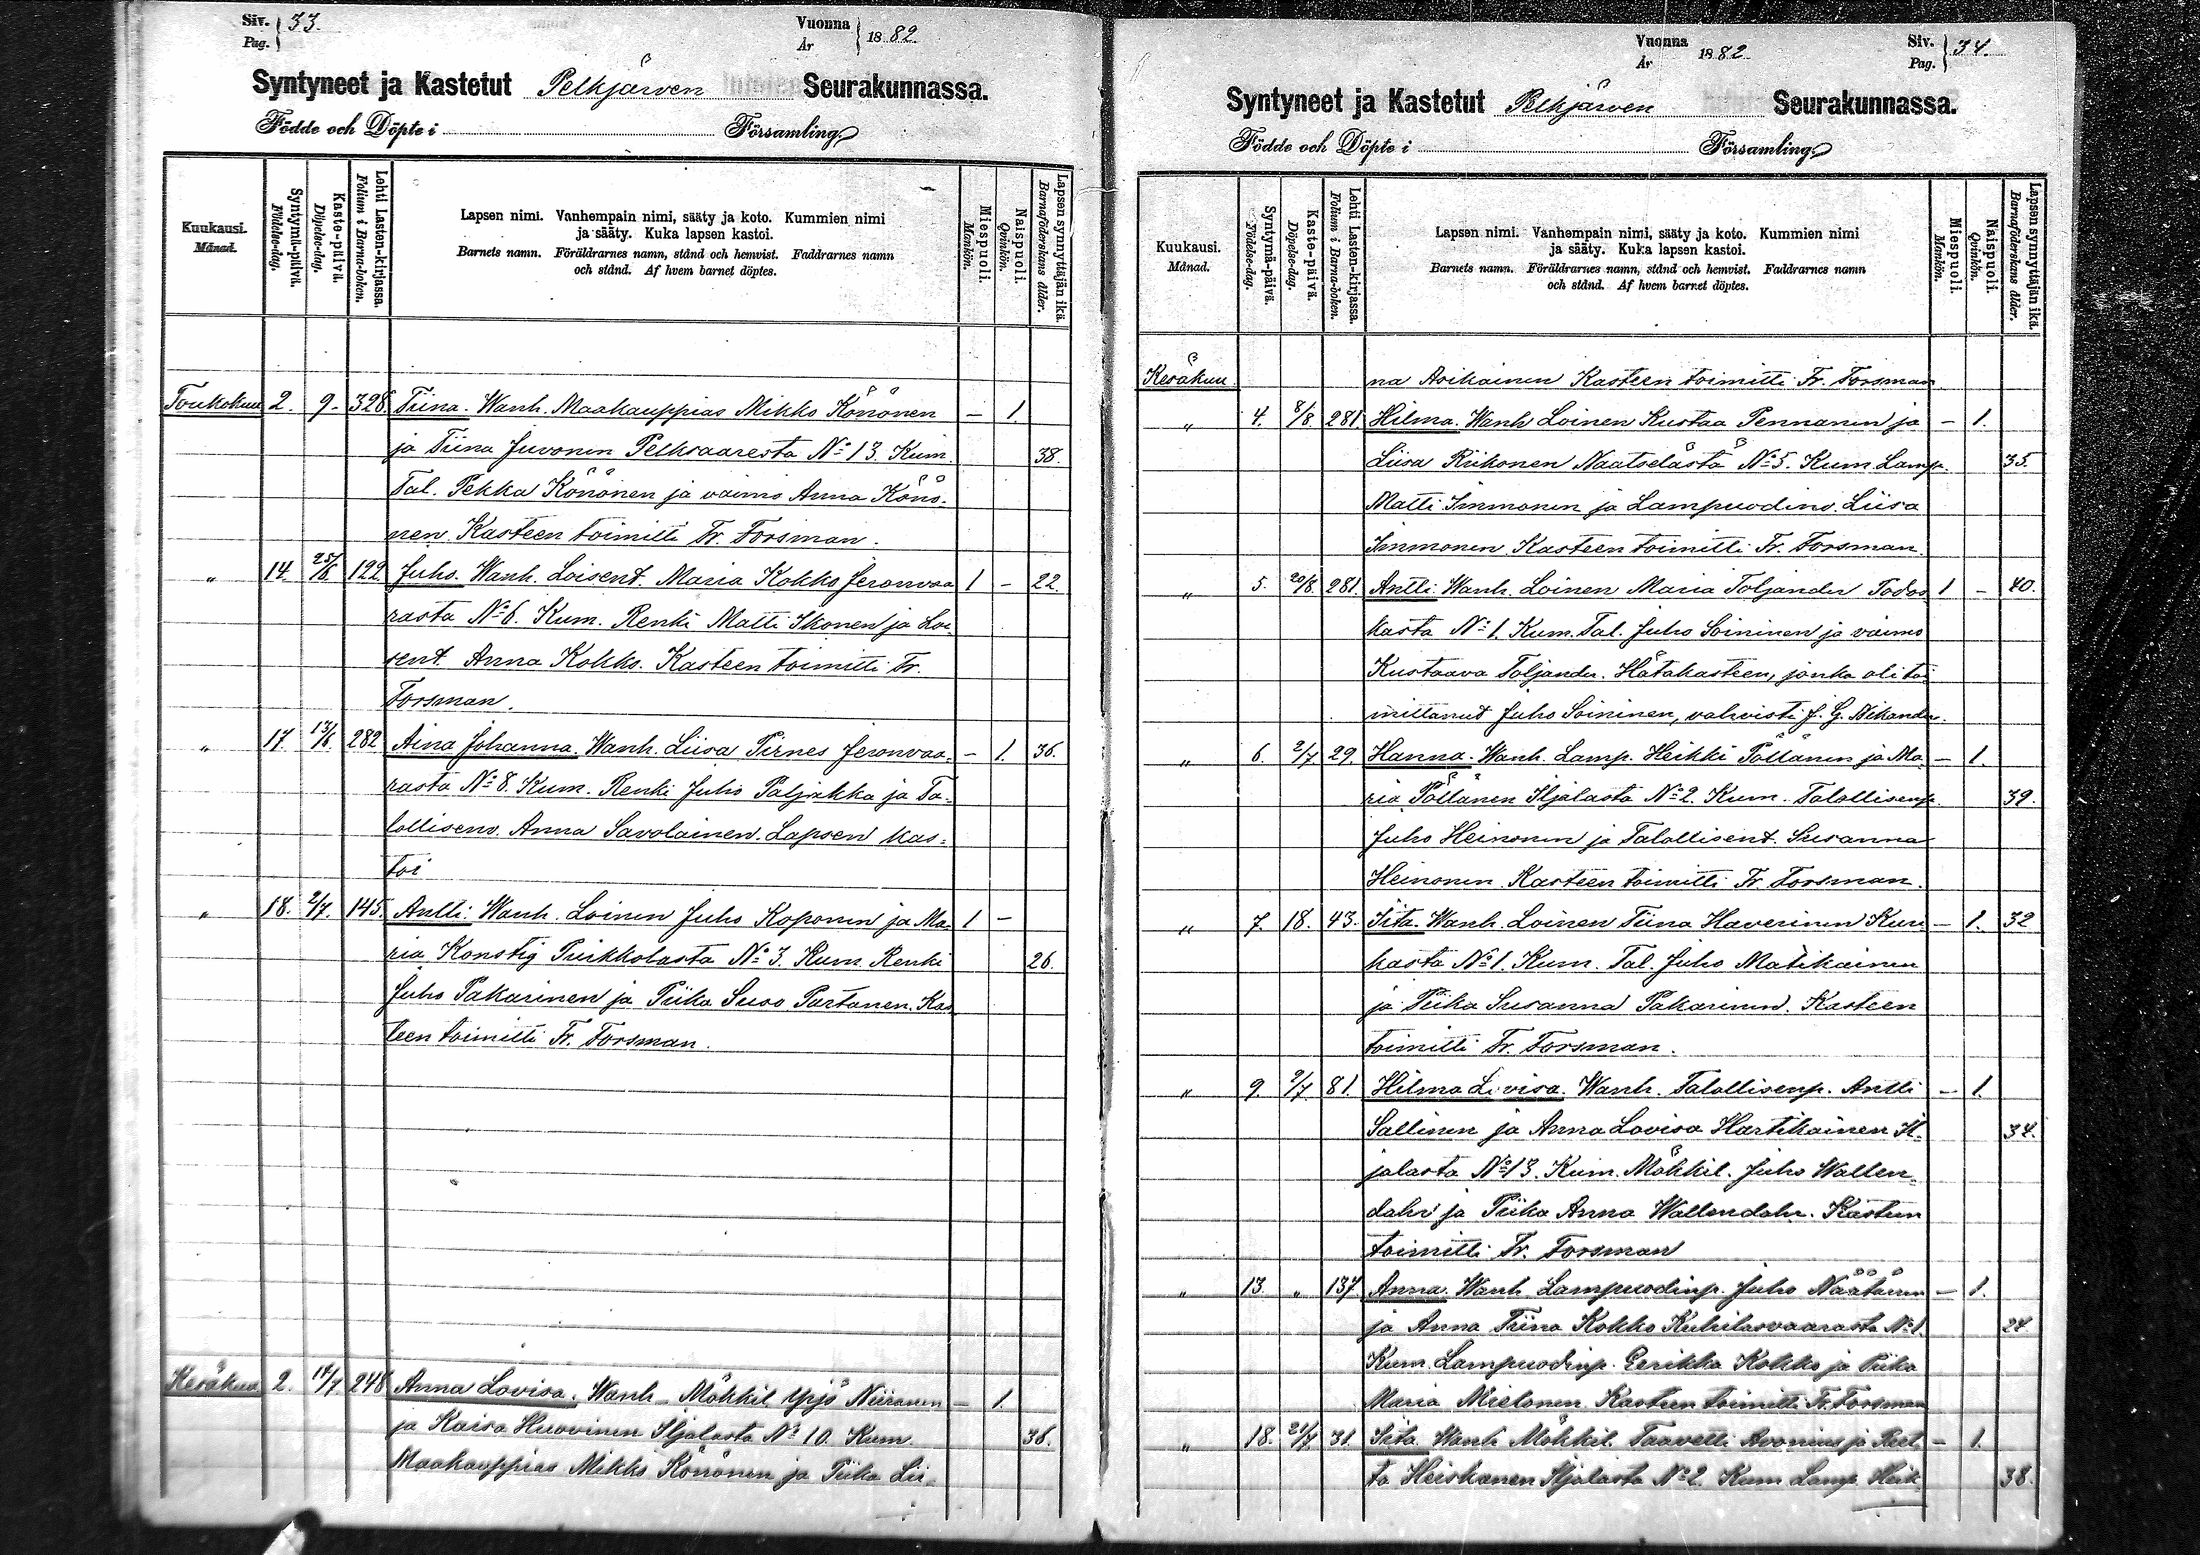 Siv. 33.
Pag.
Vuonna 1882
År
Syntyneet ja Kastetut Pelkjärven Seurakunnassa.
Födde och Döpte i Församling
Kuukausi.
Månad.
Syntymä-päivä.
Födelse-dag.
Kaste-päivä.
Döpelse-dag.
Lehti Lasten-kirjassa.
Folium i Barna-boken.
Lapsen nimi. Vanhempain nimi, sääty ja koto. Kummien nimi
ja sääty. Kuka lapsen kastoi.
Barnets namn. Föräldrarnes namn, stånd och hemvist. Faddrarnes namn
och stånd. Af hvem barnet döptes.
Miespuoli.
Mankön.
Naispuoli.
Qvinkön.
Lapsen synnyttäjän ikä.
Barnaföderskans ålder.
Toukokuu 2. 9. 328 Tiina. Wanh. Maakauppias Mikko Könönen – 1.
ja Tiina Juvonen Pelksaaresta No 13. Kum. 38.
Tal. Pekka Könönen ja vaimo Anna Könö-
nen. Kasteen toimitti Fr. Forsman.
" 14. 25/6. 122 Juho. Wanh. Loisent. Maria Kokko Jeronvaa 1 – 22.
rasta No 6. Kum. Renki Matti Ikonen ja Loi-
sent. Anna Kokko. Kasteen toimitti Fr.
Forsman.
" 17. 282 Aina Johanna. Wanh. Liisa Pirnes Jeronvaa- – 1. 36.
rasta No 8. Kum. Renki Juho Paljakka ja Ta-
lollisenv. Anna Savolainen. Lapsen kas-
toi
" 18. 2/7. 145. Antti. Wanh. Loinen Juho Koponen ja Ma- 1 –
ria Konstig Puikkolasta No 3. Kum. Renki 26.
Juho Pakarinen ja Piika Suso Partanen. Kas
teen toimitti Fr. Forsman.
Kesäkuu 2. 14/7 248 Anna Lovisa. Wanh. Mökkil. Yrjö Niiranen – 1.
ja Kaisa Huovinen Iljalasta No 10. Kum. 36.
Maakauppias Mikko Könönen ja Piika Lii-
Vuonna 1882
År
Siv. 34.
Pag.
Syntyneet ja Kastetut Pelkjärven Seurakunnassa.
Födde och Döpte i Församling
Kuukausi.
Månad.
Syntymä-päivä.
Födelse-dag.
Kaste-päivä.
Döpelse-dag.
Lehti Lasten-kirjassa.
Folium i Barna-boken.
Lapsen nimi. Vanhempain nimi, sääty ja koto. Kummien nimi
ja sääty. Kuka lapsen kastoi.
Barnets namn. Föräldrarnes namn, stånd och hemvist. Faddrarnes namn
och stånd. Af hvem barnet döptes.
Miespuoli.
Mankön.
Naispuoli.
Qvinkön.
Lapsen synnyttäjän ikä.
Barnaföderskans ålder.
Kesäkuu na Asikainen Kasteen toimitti Fr. Forsman
" 4. 8/8. 281. Hilma. Wanh. Loinen Kustaa Pennanen ja – 1.
Liisa Riikonen Naatselästä No 5. Kum. Lamp. 35.
Matti Immonen ja Lampuodinv. Liisa
Immonen. Kasteen toimitti Fr. Forsman.
" 5. 20/8. 281. Antti. Wanh. Loinen Maria Toljander 1 – 40.
kasta No 1. Kum. Tal. Juho Soininen ja vaimo
Kustaava Toljander. Hätäkasteen, jonka oli toi
mittanut Juho Soininen, vahvisti J. G. Nikander.
" 6. 2/7 29. Hanna. Wanh. Lamp. Heikki Pöllänen ja Ma- – 1.
ria Pöllänen Iljalasta No 2. Kum. Talollisenp. 39.
Juho Heinonen ja Talollisent. Susanna
Heinonen. Kasteen toimitti Fr. Forsman.
" 7. 18. 43. Iita. Wanh. Loinen Tiina Haverinen – 1. 32
kasta No 1. Kum. Tal. Juho Matikainen
ja Piika Susanna Pakarinen. Kasteen
toimitti Fr. Forsman.
" 9. 9/7. 81. Hilma Lovisa. Wanh. Talollisenp. Antti – 1.
Sallinen ja Anna Lovisa Hartikainen Il- 34.
jalasta No 13. Kum. Mökkil. Juho Wallen-
dahr ja Piika Anna Wallendahr. Kasteen
toimitti Fr. Forsman
" 13. " 137 Anna. Wanh. Lampuodinp. Juho Näätänen – 1.
ja Anna Tiina Kokko Kuhilasvaarasta No 1. 24
Kum. Lampuodinp. Eerikka Kokko ja Piika
Maria Mielonen. Kasteen toimitti Fr. Forsman
" 18. 31. Iita. Wanh. Mökkil. Taavetti Avonius ja Reet- – 1.
ta Heiskanen Iljalasta No 2. Kum. Lamp. Heik- 38.